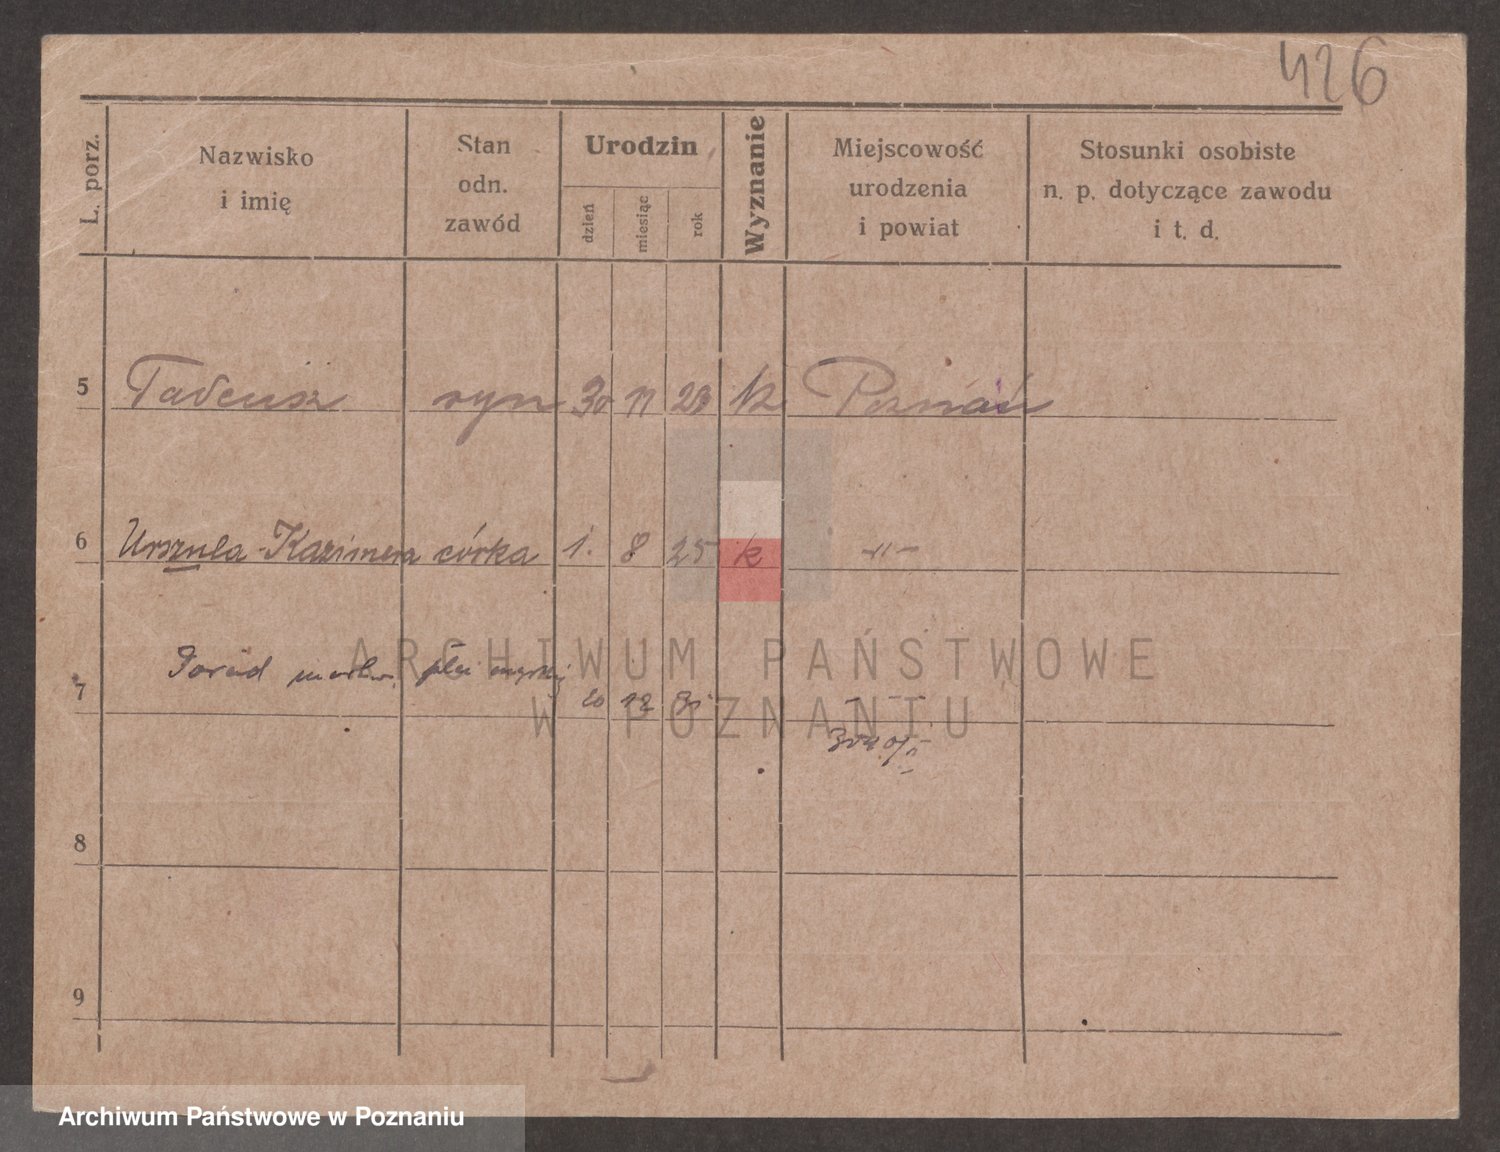 426
L. porz.
Nazwisko
i imię
Stan
odn.
zawód
Urodzin
dzień
miesiąc
rok
Wyznanie
Miejscowość
urodzenia
i powiat
Stosunki osobiste
n. p. dotyczące zawodu
i t. d.
5 Tadeusz syn 30 11 23 k Poznań
6 Urszula-Kazimera córka 1. 8 25 k -"-
7 Poród płci
20 12
ARCHIWUM PAŃSTWOWE
W POZNANIU
8
9
Archiwum Państwowe w Poznaniu